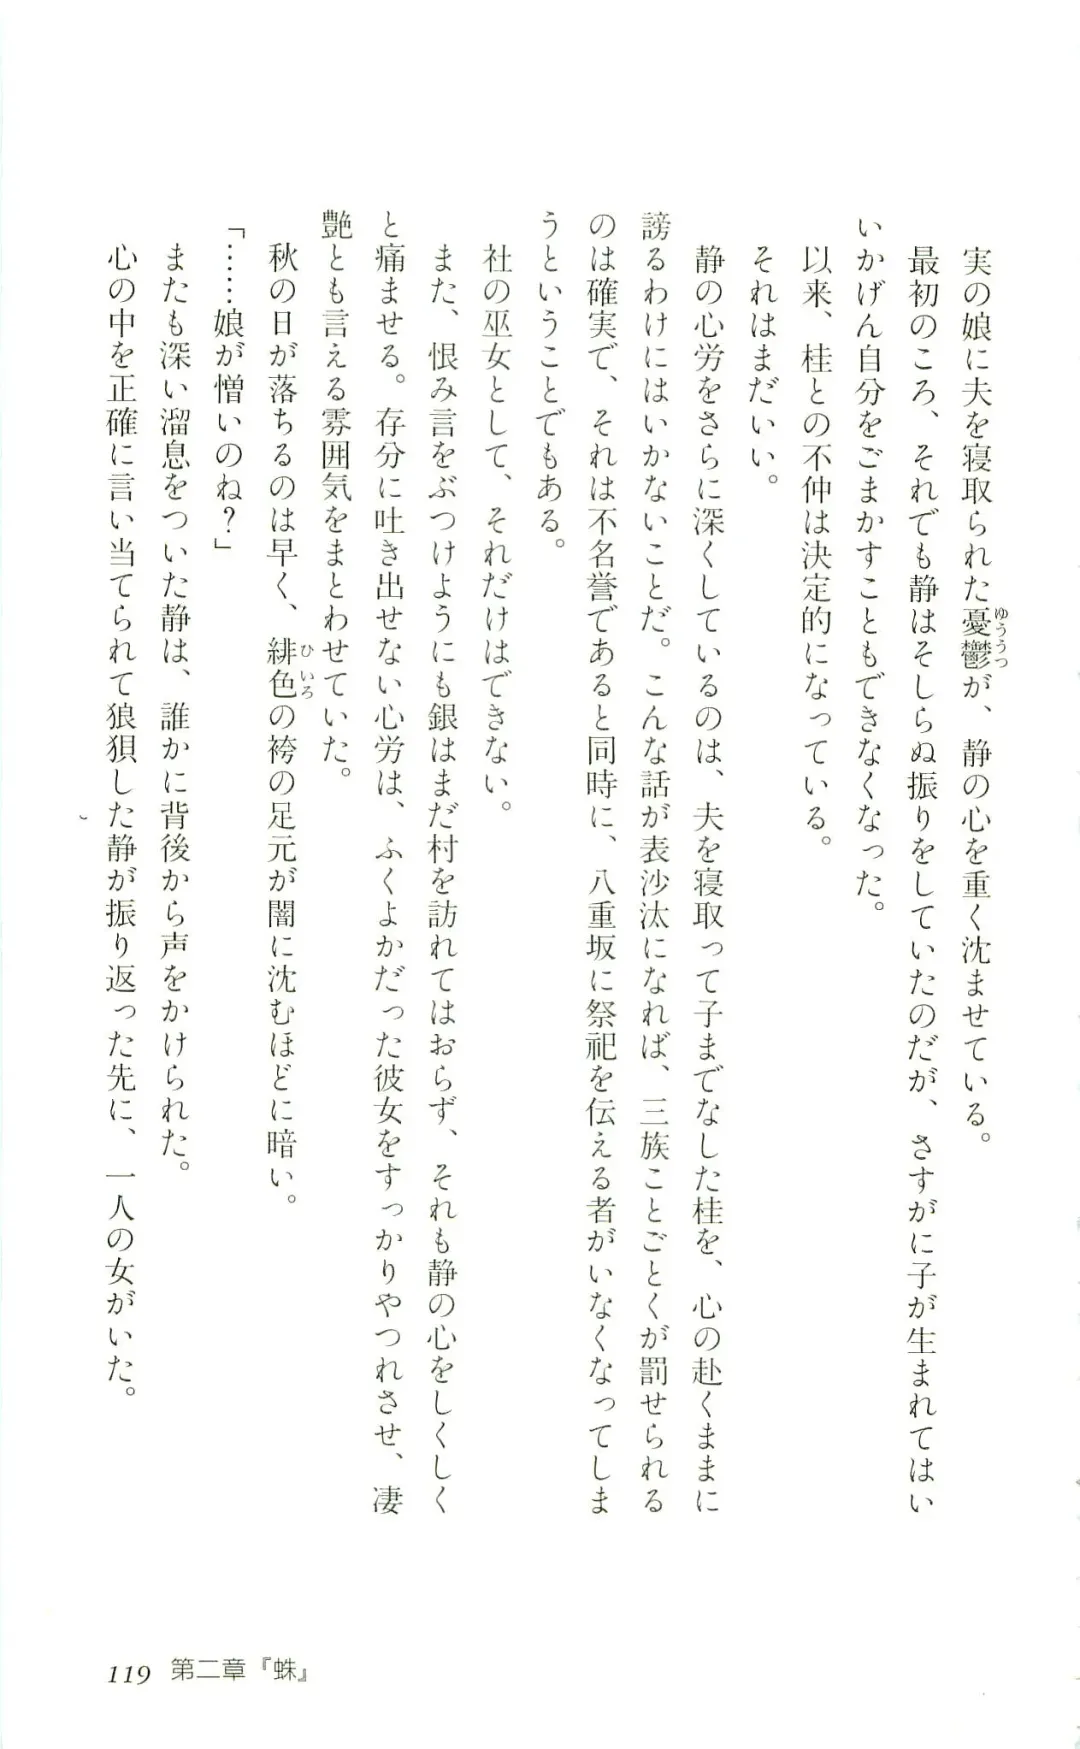 実の娘に夫を寝取られた憂鬱が、静の心を重く沈ませている。
ゆううつ
最初のころ、それでも静はそしらぬ振りをしていたのだが、さすがに子が生まれてはい
いかげん自分をごまかすこともできなくなった。
以来、桂との不仲は決定的になっている。
それはまだいい。
静の心労をさらに深くしているのは、夫を寝取って子までなした桂を、心の赴くままに
謗るわけにはいかないことだ。こんな話が表沙汰になれば、三族ことごとくが罰せられる
のは確実で、それは不名誉であると同時に、八重坂に祭祀を伝える者がいなくなってしま
うということでもある。
社の巫女として、それだけはできない。
また、恨み言をぶつけようにも銀はまだ村を訪れてはおらず、それも静の心をしくしく
と痛ませる。存分に吐き出せない心労は、ふくよかだった彼女をすっかりやつれさせ、凄
艶とも言える雰囲気をまとわせていた。
秋の日が落ちるのは早く、緋色の袴の足元が闇に沈むほどに暗い。
ひいろ
「……娘が憎いのね？」
またも深い溜息をついた静は、誰かに背後から声をかけられた。
心の中を正確に言い当てられて狼狽した静が振り返った先に、一人の女がいた。
119 第二章『蛛』